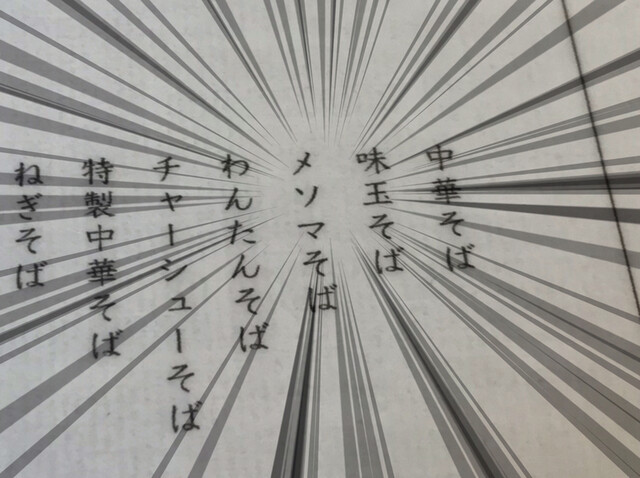 中華そば
味玉そば
メソマそば
わんたんそば
チャーシューそば
特製中華そば
ねぎそば